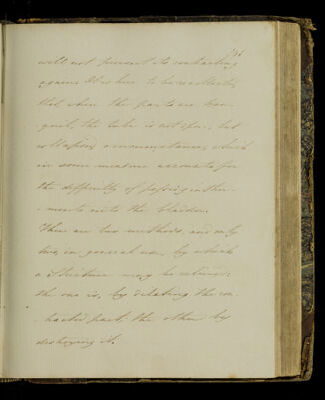 will not prevent its contracting
again. It is here to be recollected,
that when the parts are tran-
quil, the tube is not open, but
collapsed, a circumstance, which
in some measure accounts for
the difficulty of passing instru-
-ments into the bladder.
There are two methods, and only
two, in general use, by which
a Stricture may be relieved:
the one is, by dilating the con-
-tracted part; the other by
destroying it.